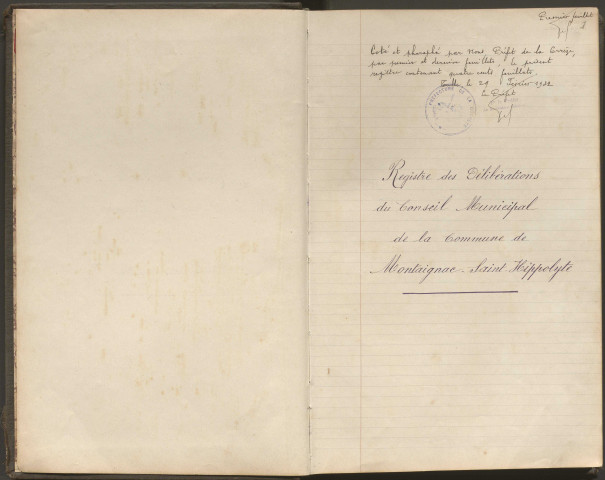 Premier feuillet
1
Coté et paraphé par nous, Préfet de la Corrèze,
par premier et dernier feuillets, le présent
registre contenant quatre cents feuillets.
Tulle, le 29 Février 1932
Le Préfet
PRÉFECTURE DE LA CORRÈZE
Registre des Délibérations
du Conseil Municipal
de la Commune de
Montaignac-Saint-Hippolyte